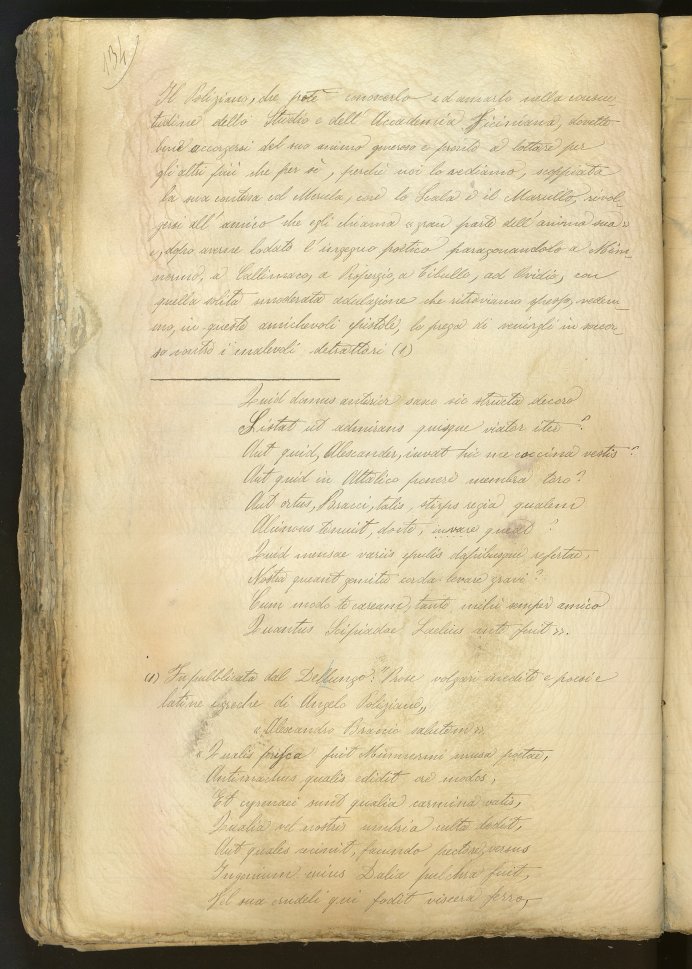 134
Il Poliziano, che potè conoscerlo ed amarlo nella consue-
tudine dello Studio e dell'Accademia Ficiniana, dovette
bene accorgersi del suo animo generoso e pronto a lottare per
gli altri più che per sè, perchè noi lo vediamo, scoppiata
la sua contesa col Merula, con lo Scala e il Marullo, rivol-
gersi all'amico che egli chiama « gran parte dell'animo suo »
e, dopo averne lodato l'ingegno poetico paragonandolo a Mim-
nermo, a Callimaco, a Properzio, a Tibullo, ad Ovidio, con
quella solita smoderata adulazione che ritroviamo spesso, vedem-
mo, in queste amichevoli epistole, lo prega di venirgli in soccor-
so contro i malevoli detrattori (1)
Quid domus anterior saxo sic structa decoro
Sistat ut admirans quisque viator iter?
Aut quid, Alexander, iuvat hic me coccina vestis?
Aut quid in Attalico ponere membra toro?
Aut ortus, Bracci, talis, stirps regia qualem
Alcinous tenuit, docte, iuvare queat?
Quid mensae variis epulis dapibusque refertae,
Nostra queant gemitu corda levare gravi?
Cum modo te caream, tanto mihi semper amico
Quantus Scipiadae Laelius ante fuit ».
(1) Fu pubblicata dal Dellungo: "Prose volgari inedite e poesie
latine e greche di Angelo Poliziano„
« Alexandro Braccio salutem ».
« Qualis prisca fuit Mimnermi musa poetae,
Antimachus qualis edidit ore modos,
Et cyrenaei sunt qualia carmina vatis,
Qualia vel nostri umbria culta dedit,
Aut quales cecinit, facundo pectore, versus
Ingenium cuius Delia pulchra fuit,
Vel sua crudeli qui fodit viscera ferro,